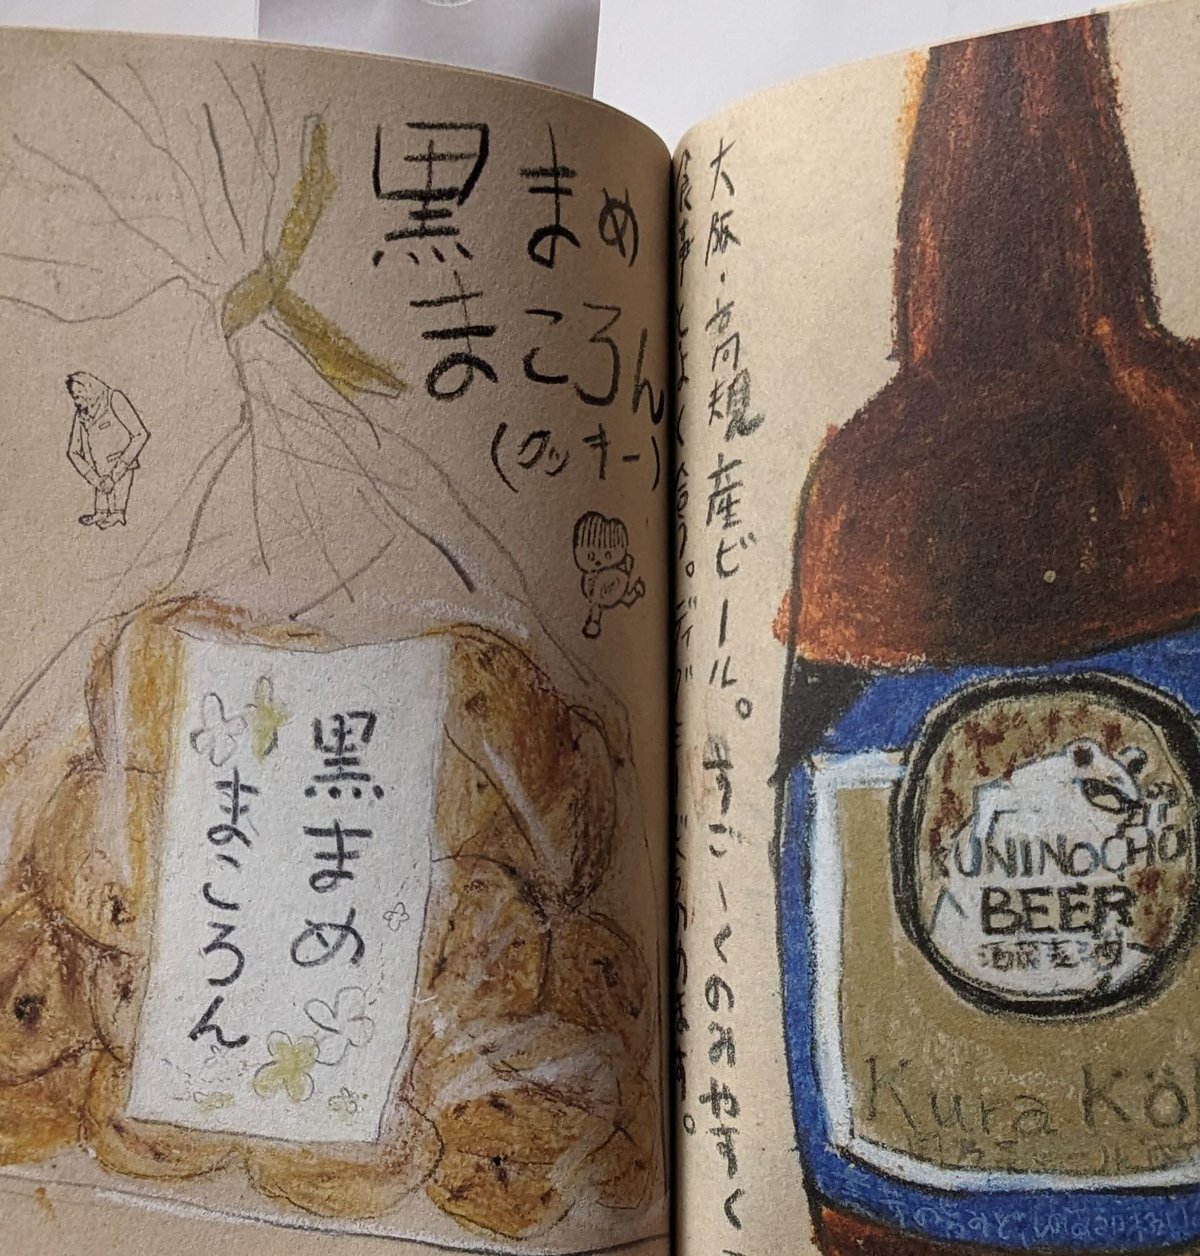 黒まめ
まころん
(クッキー)
黒まめ
まころん
大阪・高規産ビール。すごーくのみやすく
食事とよく合う。
KUNINOCHO
BEER
Kura Kö